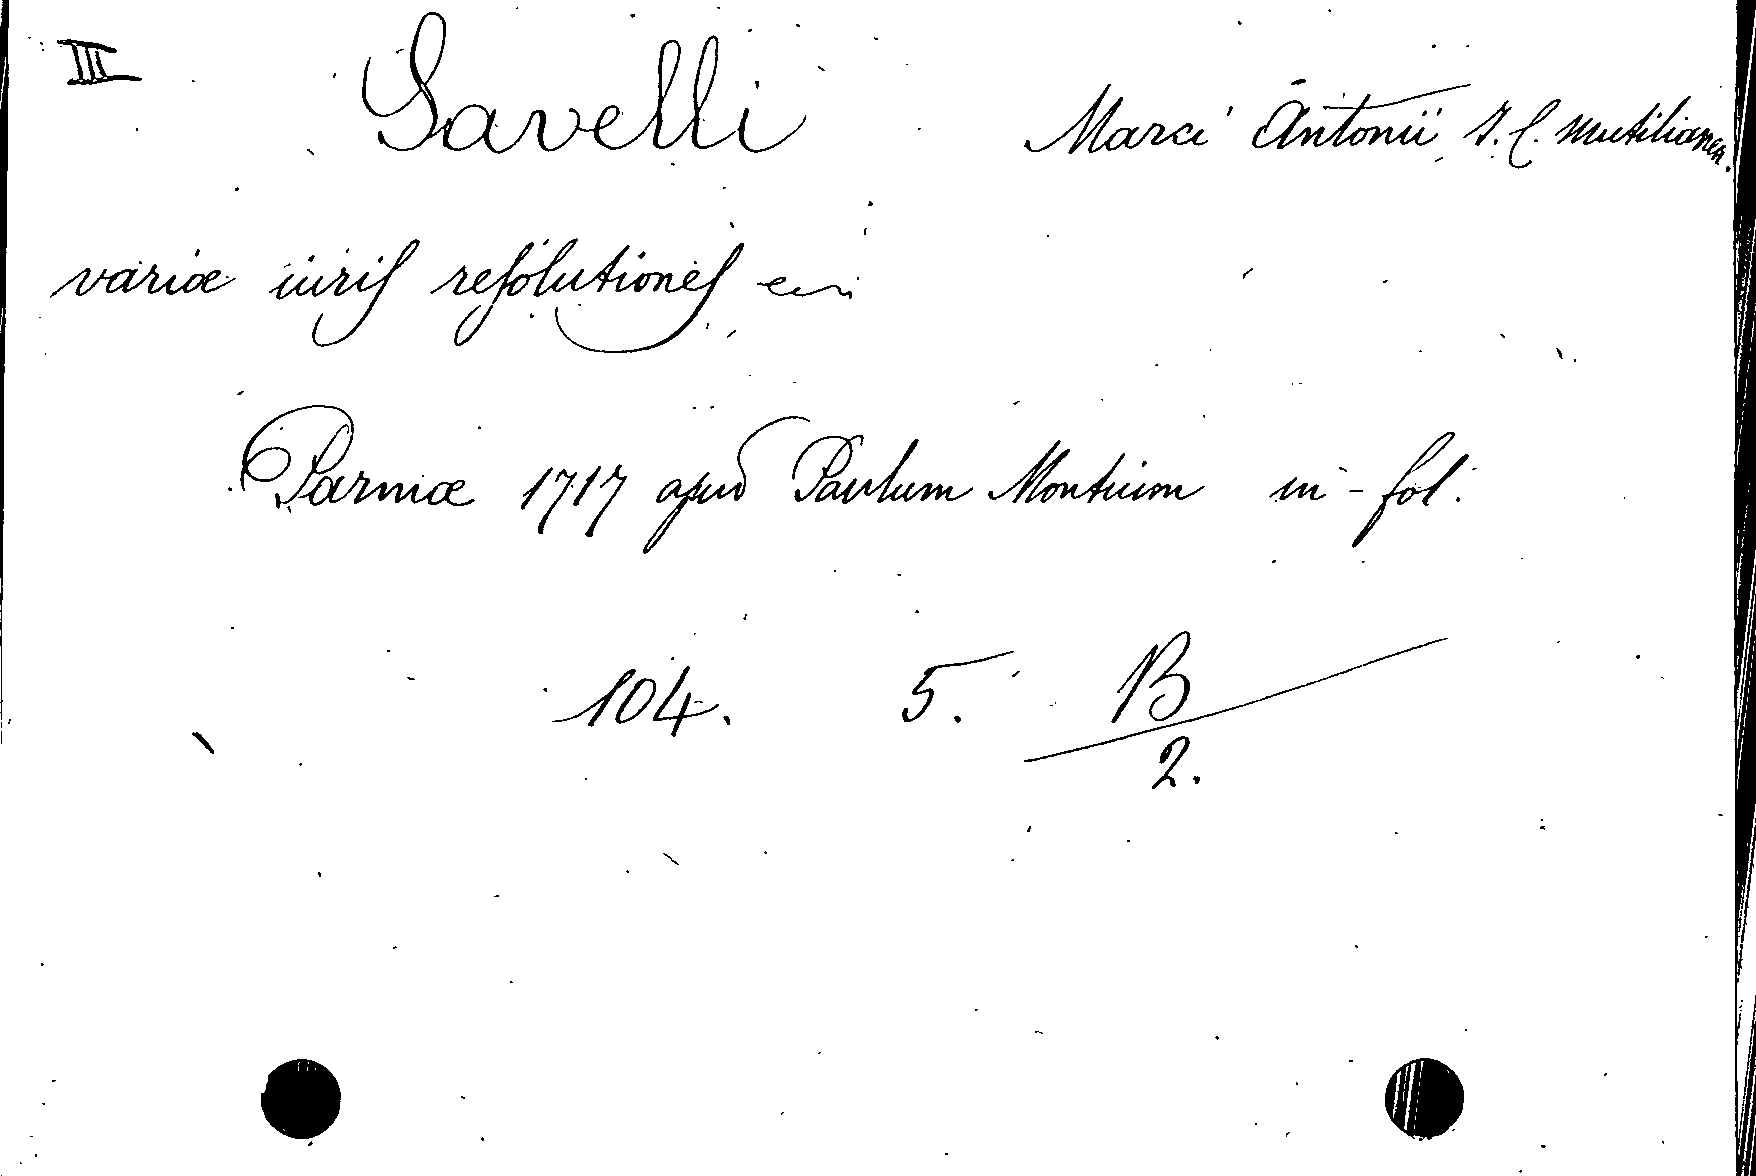 III Savelli Marci Antonii I. C. Mutilianen.
variæ iuris resolutiones
Parmæ 1717 apud Paulum Montium in-fol.
104. 5. B
2.